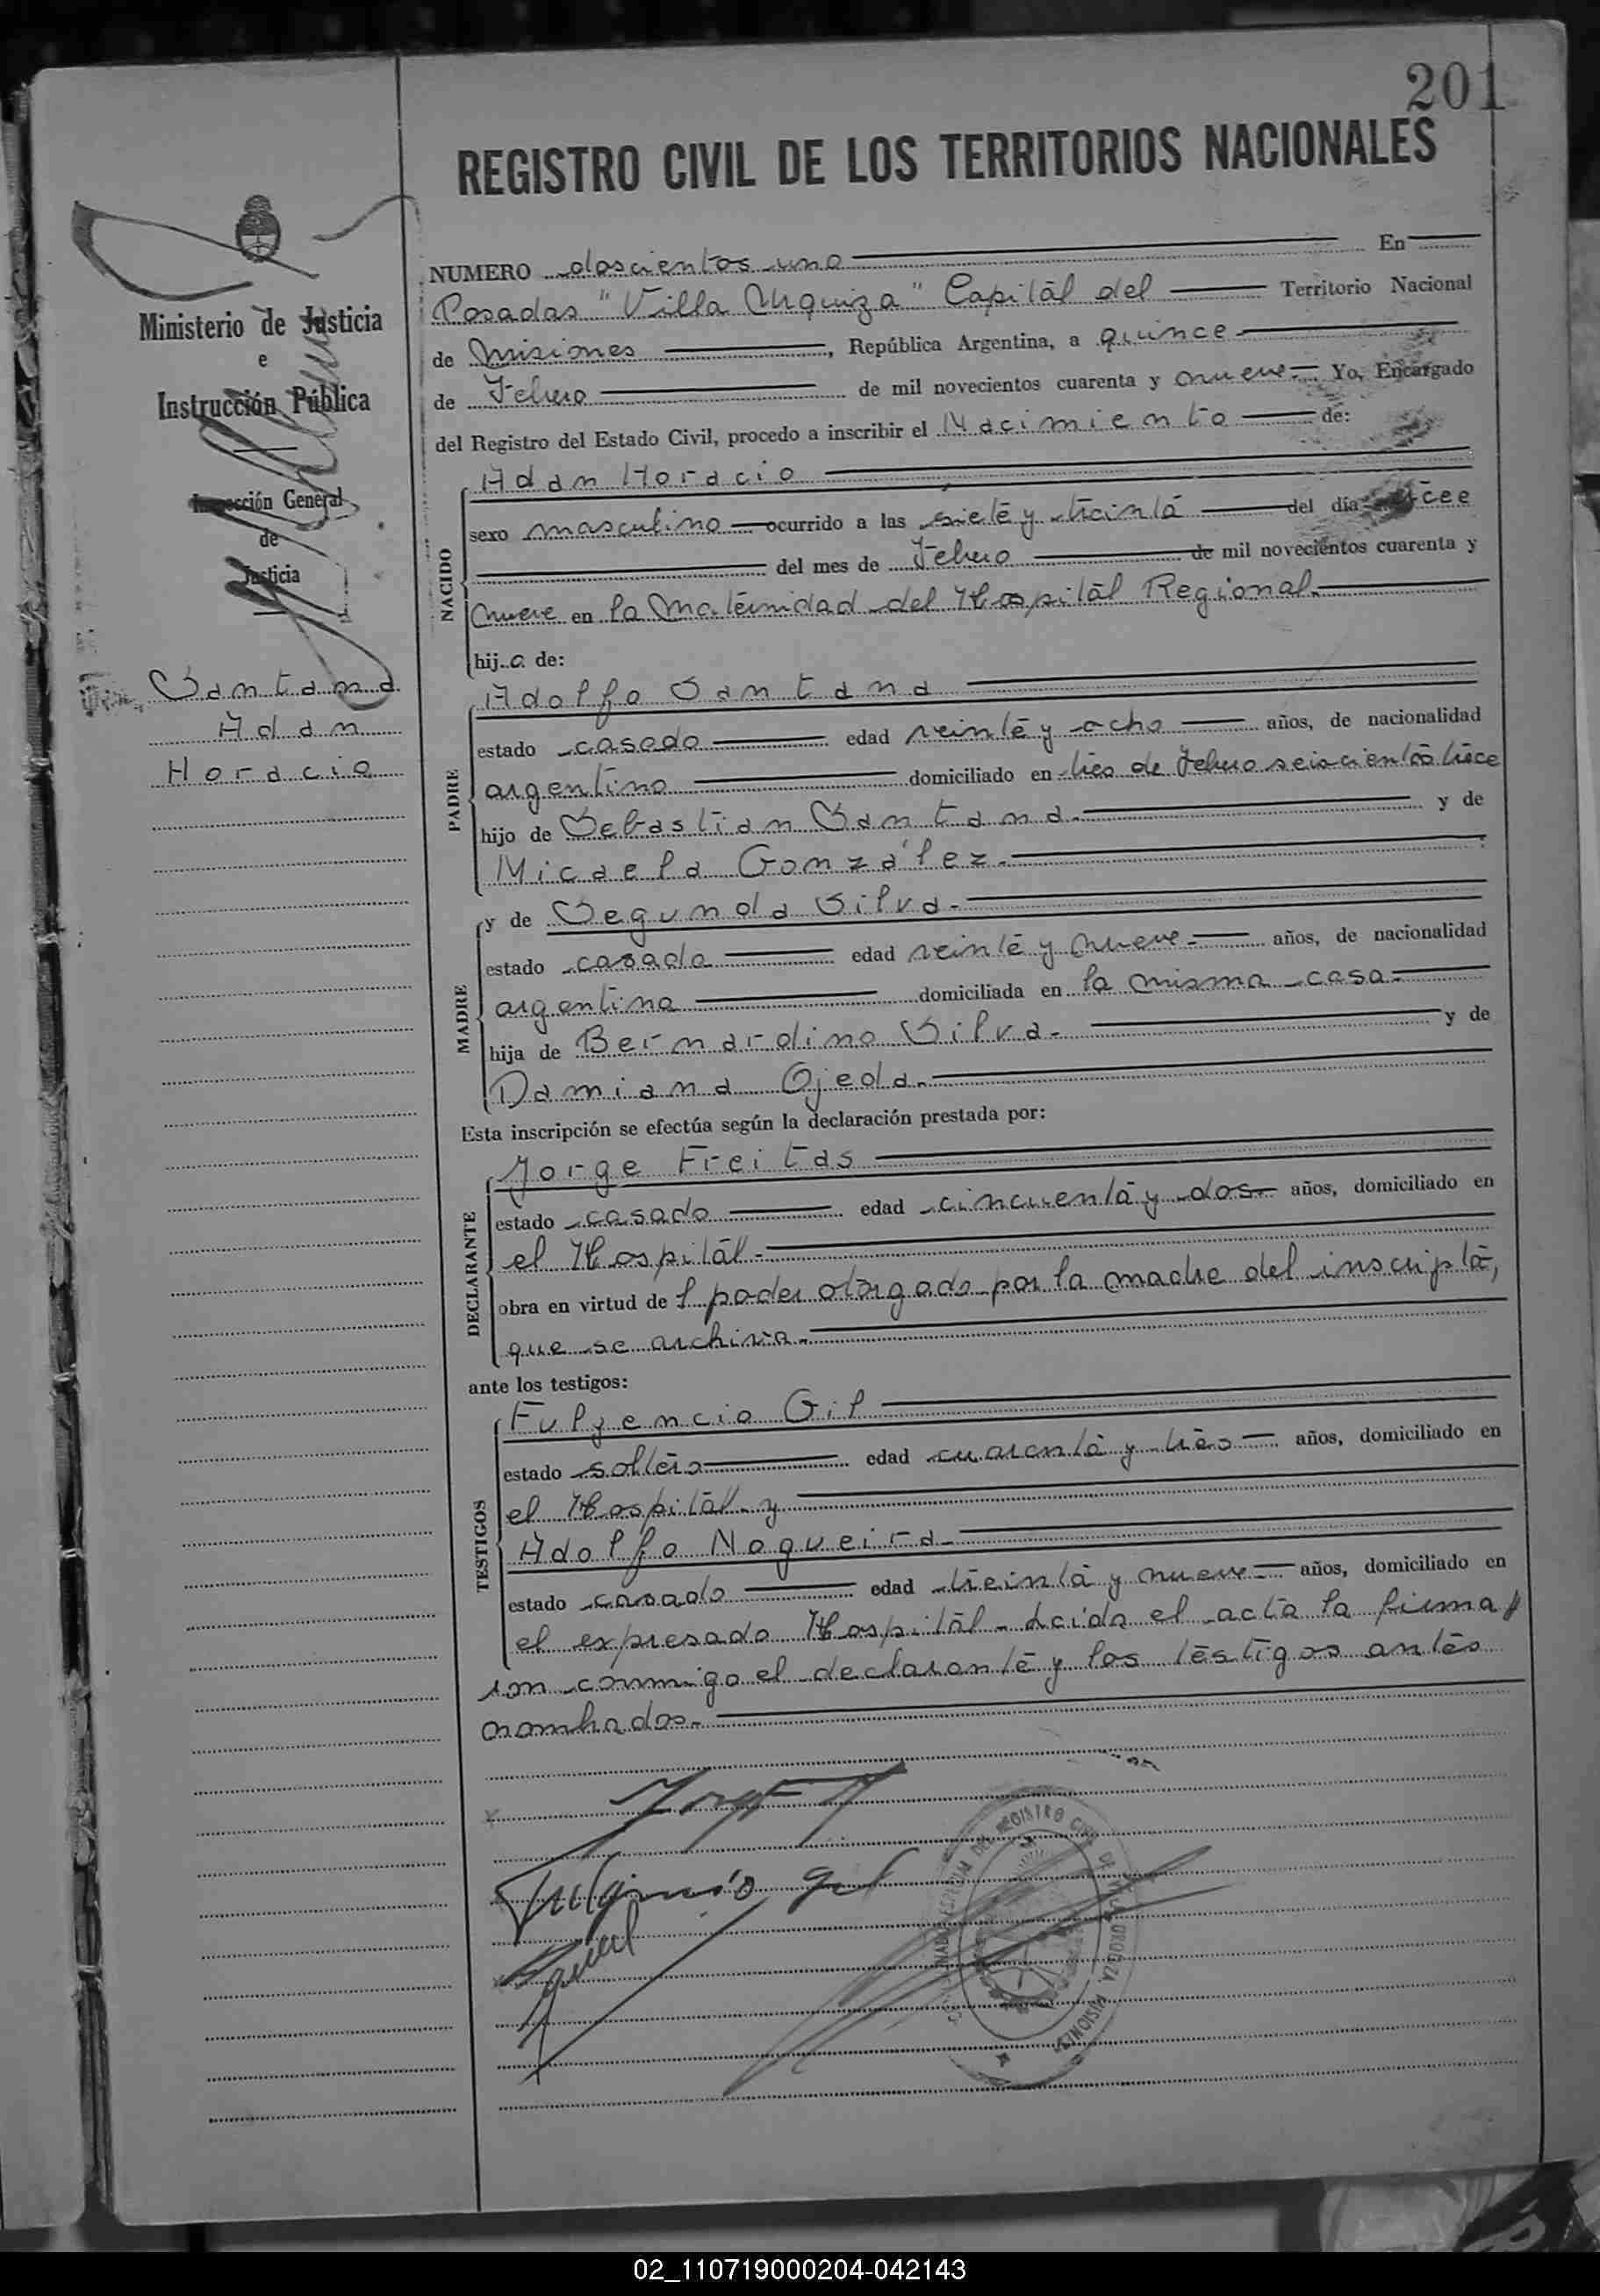 201
REGISTRO CIVIL DE LOS TERRITORIOS NACIONALES
Ministerio de Justicia
e
Instrucción Pública
Inspección General
de
Justicia
Santana
Adan
Horacio
NUMERO doscientos uno En
Posadas "Villa Urquiza" Capital del Territorio Nacional
de Misiones, República Argentina, a quince
de Febrero de mil novecientos cuarenta y nueve.- Yo, Encargado
del Registro del Estado Civil, procedo a inscribir el Nacimiento de:
NACIDO
Adan Horacio
sexo masculino ocurrido a las siete y treinta del día
del mes de Febrero de mil novecientos cuarenta y
nueve en la Maternidad del Hospital Regional.
hijo de:
PADRE
Adolfo Santana
estado casado edad veinte y ocho años, de nacionalidad
argentino domiciliado en tres de Febrero seiscientos trece
hijo de Sebastian Santana. y de
Micaela González.
MADRE
y de Segunda Silva.
estado casada edad veinte y nueve.- años, de nacionalidad
argentina domiciliada en la misma casa.
hija de Bernardino Silva. y de
Damiana Ojeda.
Esta inscripción se efectúa según la declaración prestada por:
DECLARANTE
Jorge Freitas
estado casado edad cincuenta y dos.- años, domiciliado en
el Hospital.
obra en virtud del poder otorgado por la madre del inscripto,
que se archiva.
ante los testigos:
TESTIGOS
Fulgencio Gil
estado soltero edad cuarenta y tres años, domiciliado en
el Hospital y
Adolfo Nogueira
estado casado edad treinta y nueve.- años, domiciliado en
el expresado Hospital.- Leida el acta la firma
ron conmigo el declarante y los testigos antes
nombrados.
Fulgencio Gil
02_110719000204-042143